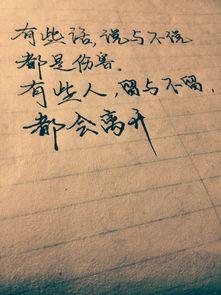 有些话，说与不说
都是伤害。
有些人，留与不留，
都会离开